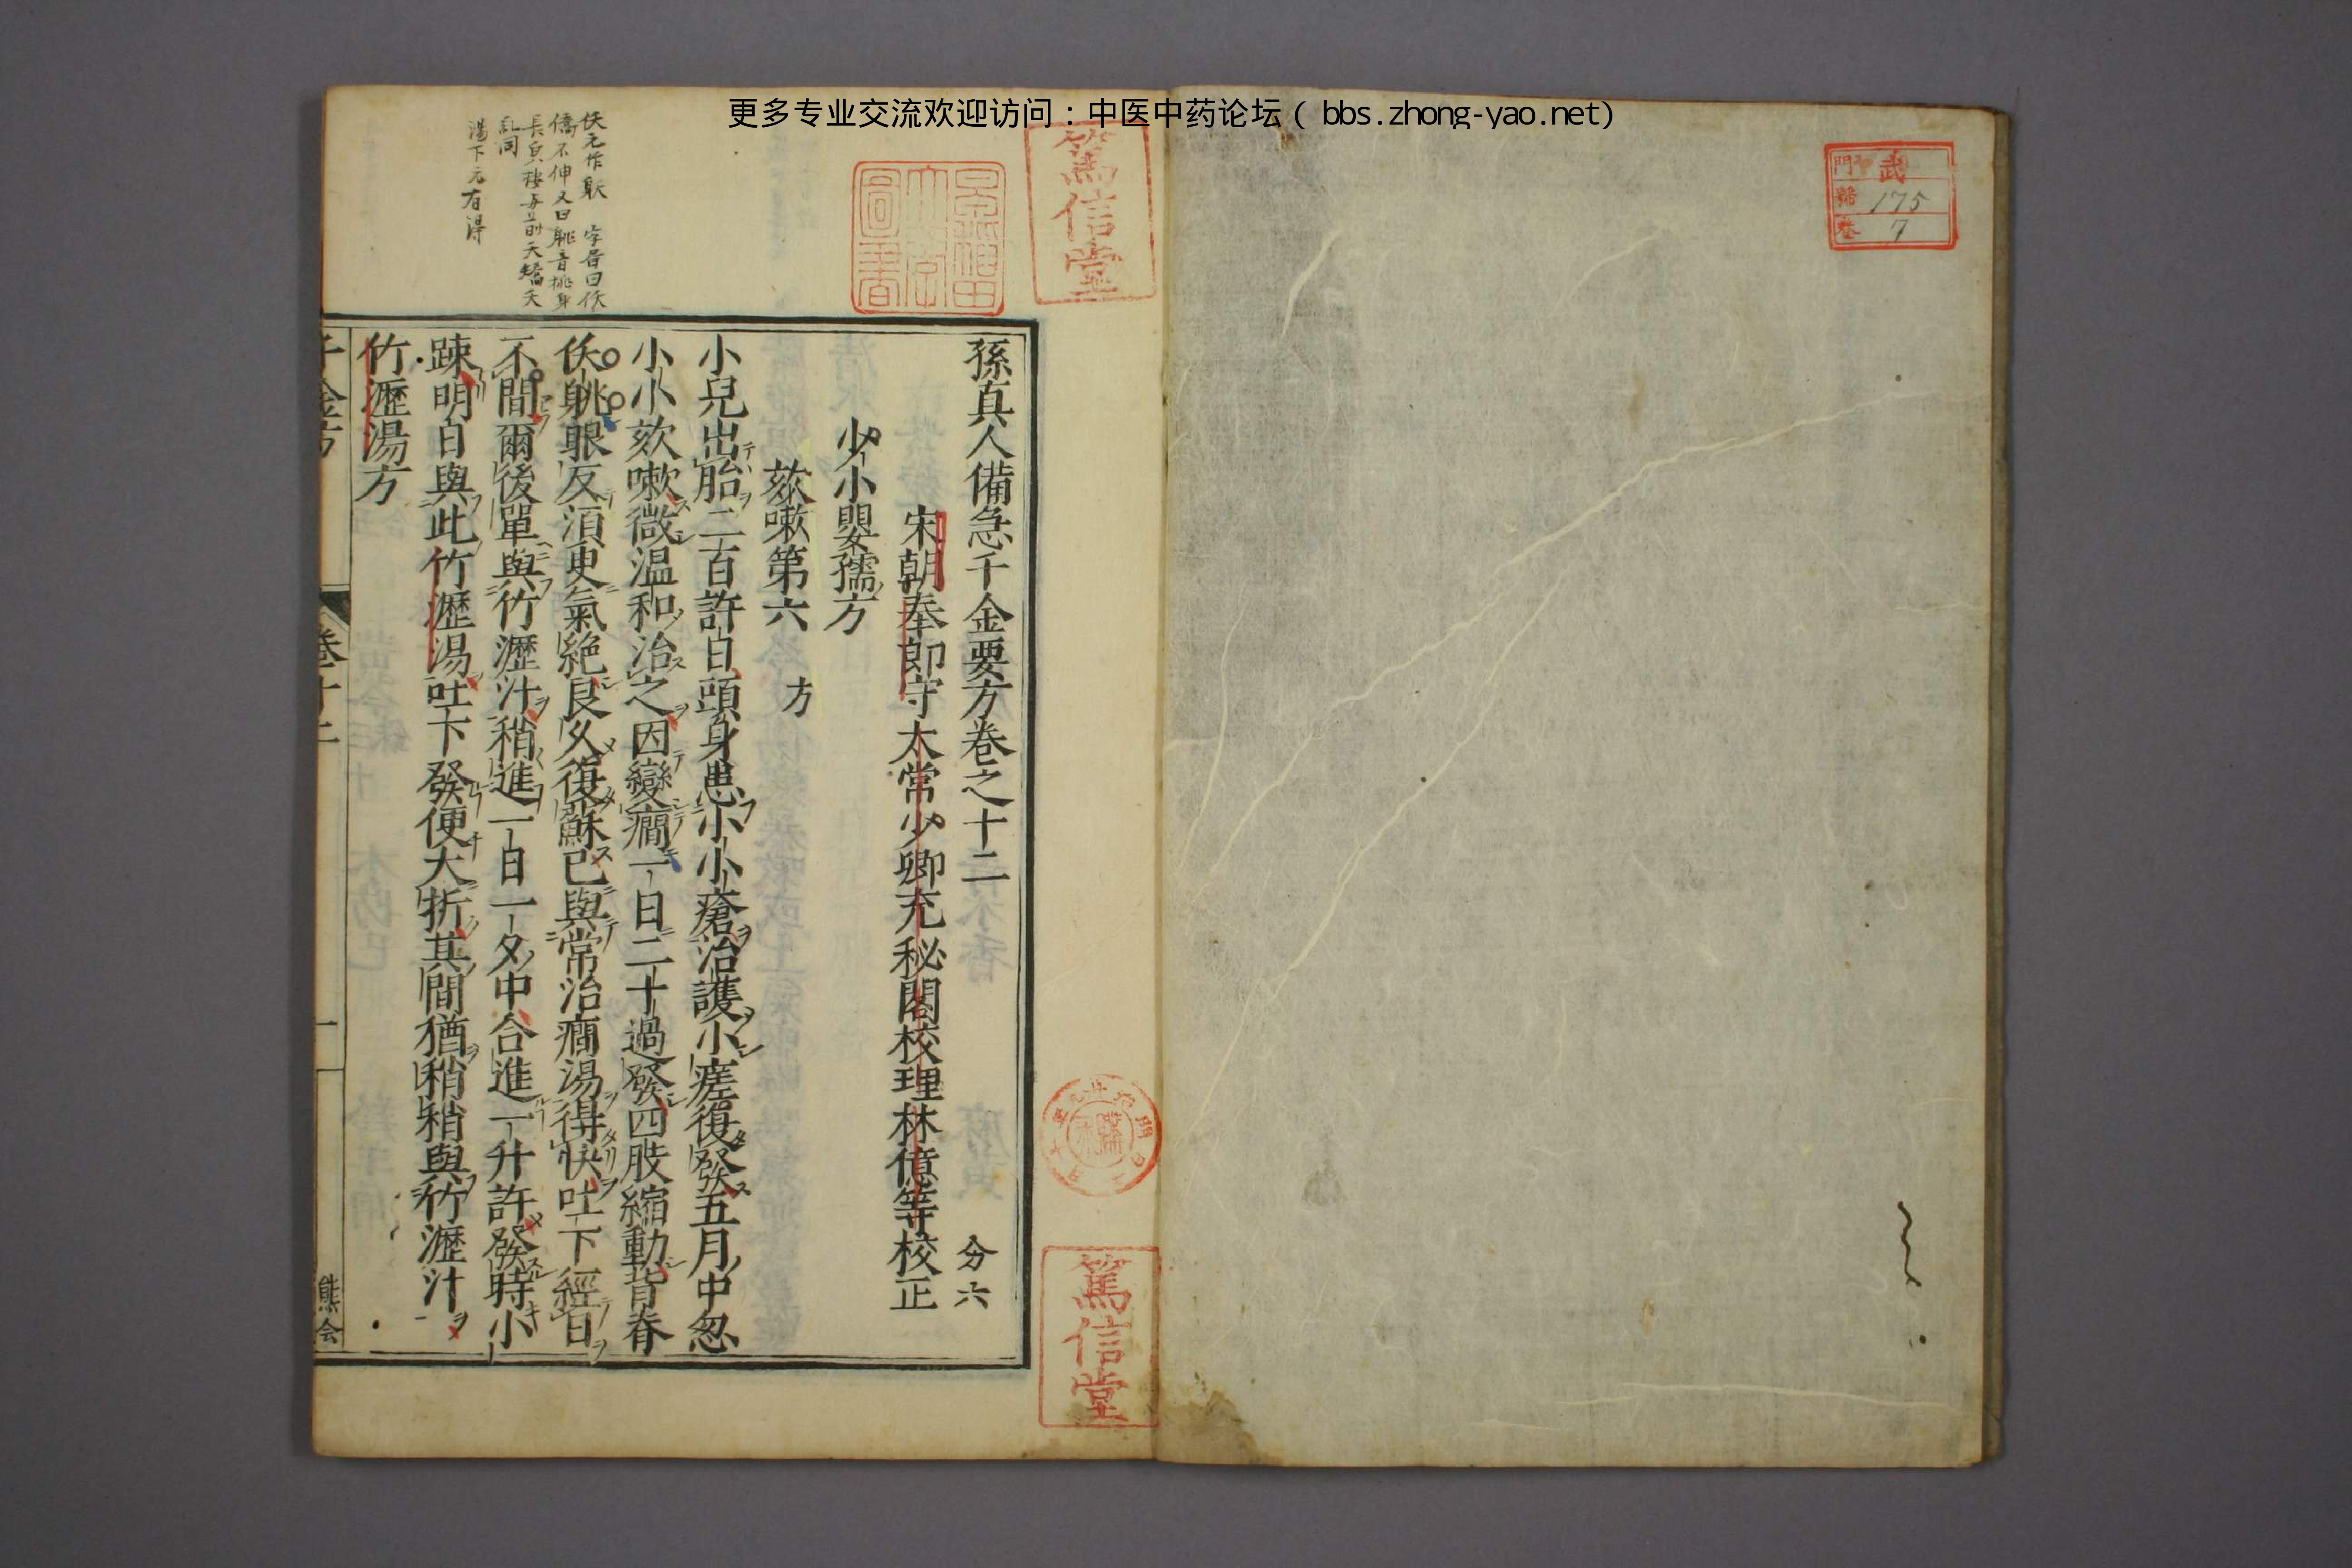 更多专业交流欢迎访问：中医中药论坛（bbs.zhong-yao.net）
武
門
號 175
卷 7
篤信堂
篤信堂
孫真人備急千金要方卷之十二
分六
宋朝奉郎守太常少卿充秘閣校理林億等校正
少小嬰孺方
欬嗽第六 方
小兒出胎二百許日頭身患小小瘡治護小瘥復發五月中忽
小小欬嗽微温和治之因變癎一日二十過發四肢縮動背脊
仸躰眼反須更氣絶良久復蘇已與常治癎湯得快吐下經日
不間爾後單與竹瀝汁稍進一日一夕中合進一升許發時小
踈明日與此竹瀝湯吐下發便大折其間猶稍稍與竹瀝汁
竹瀝湯方
千金方 卷十二 一
熊会
湯下元有得